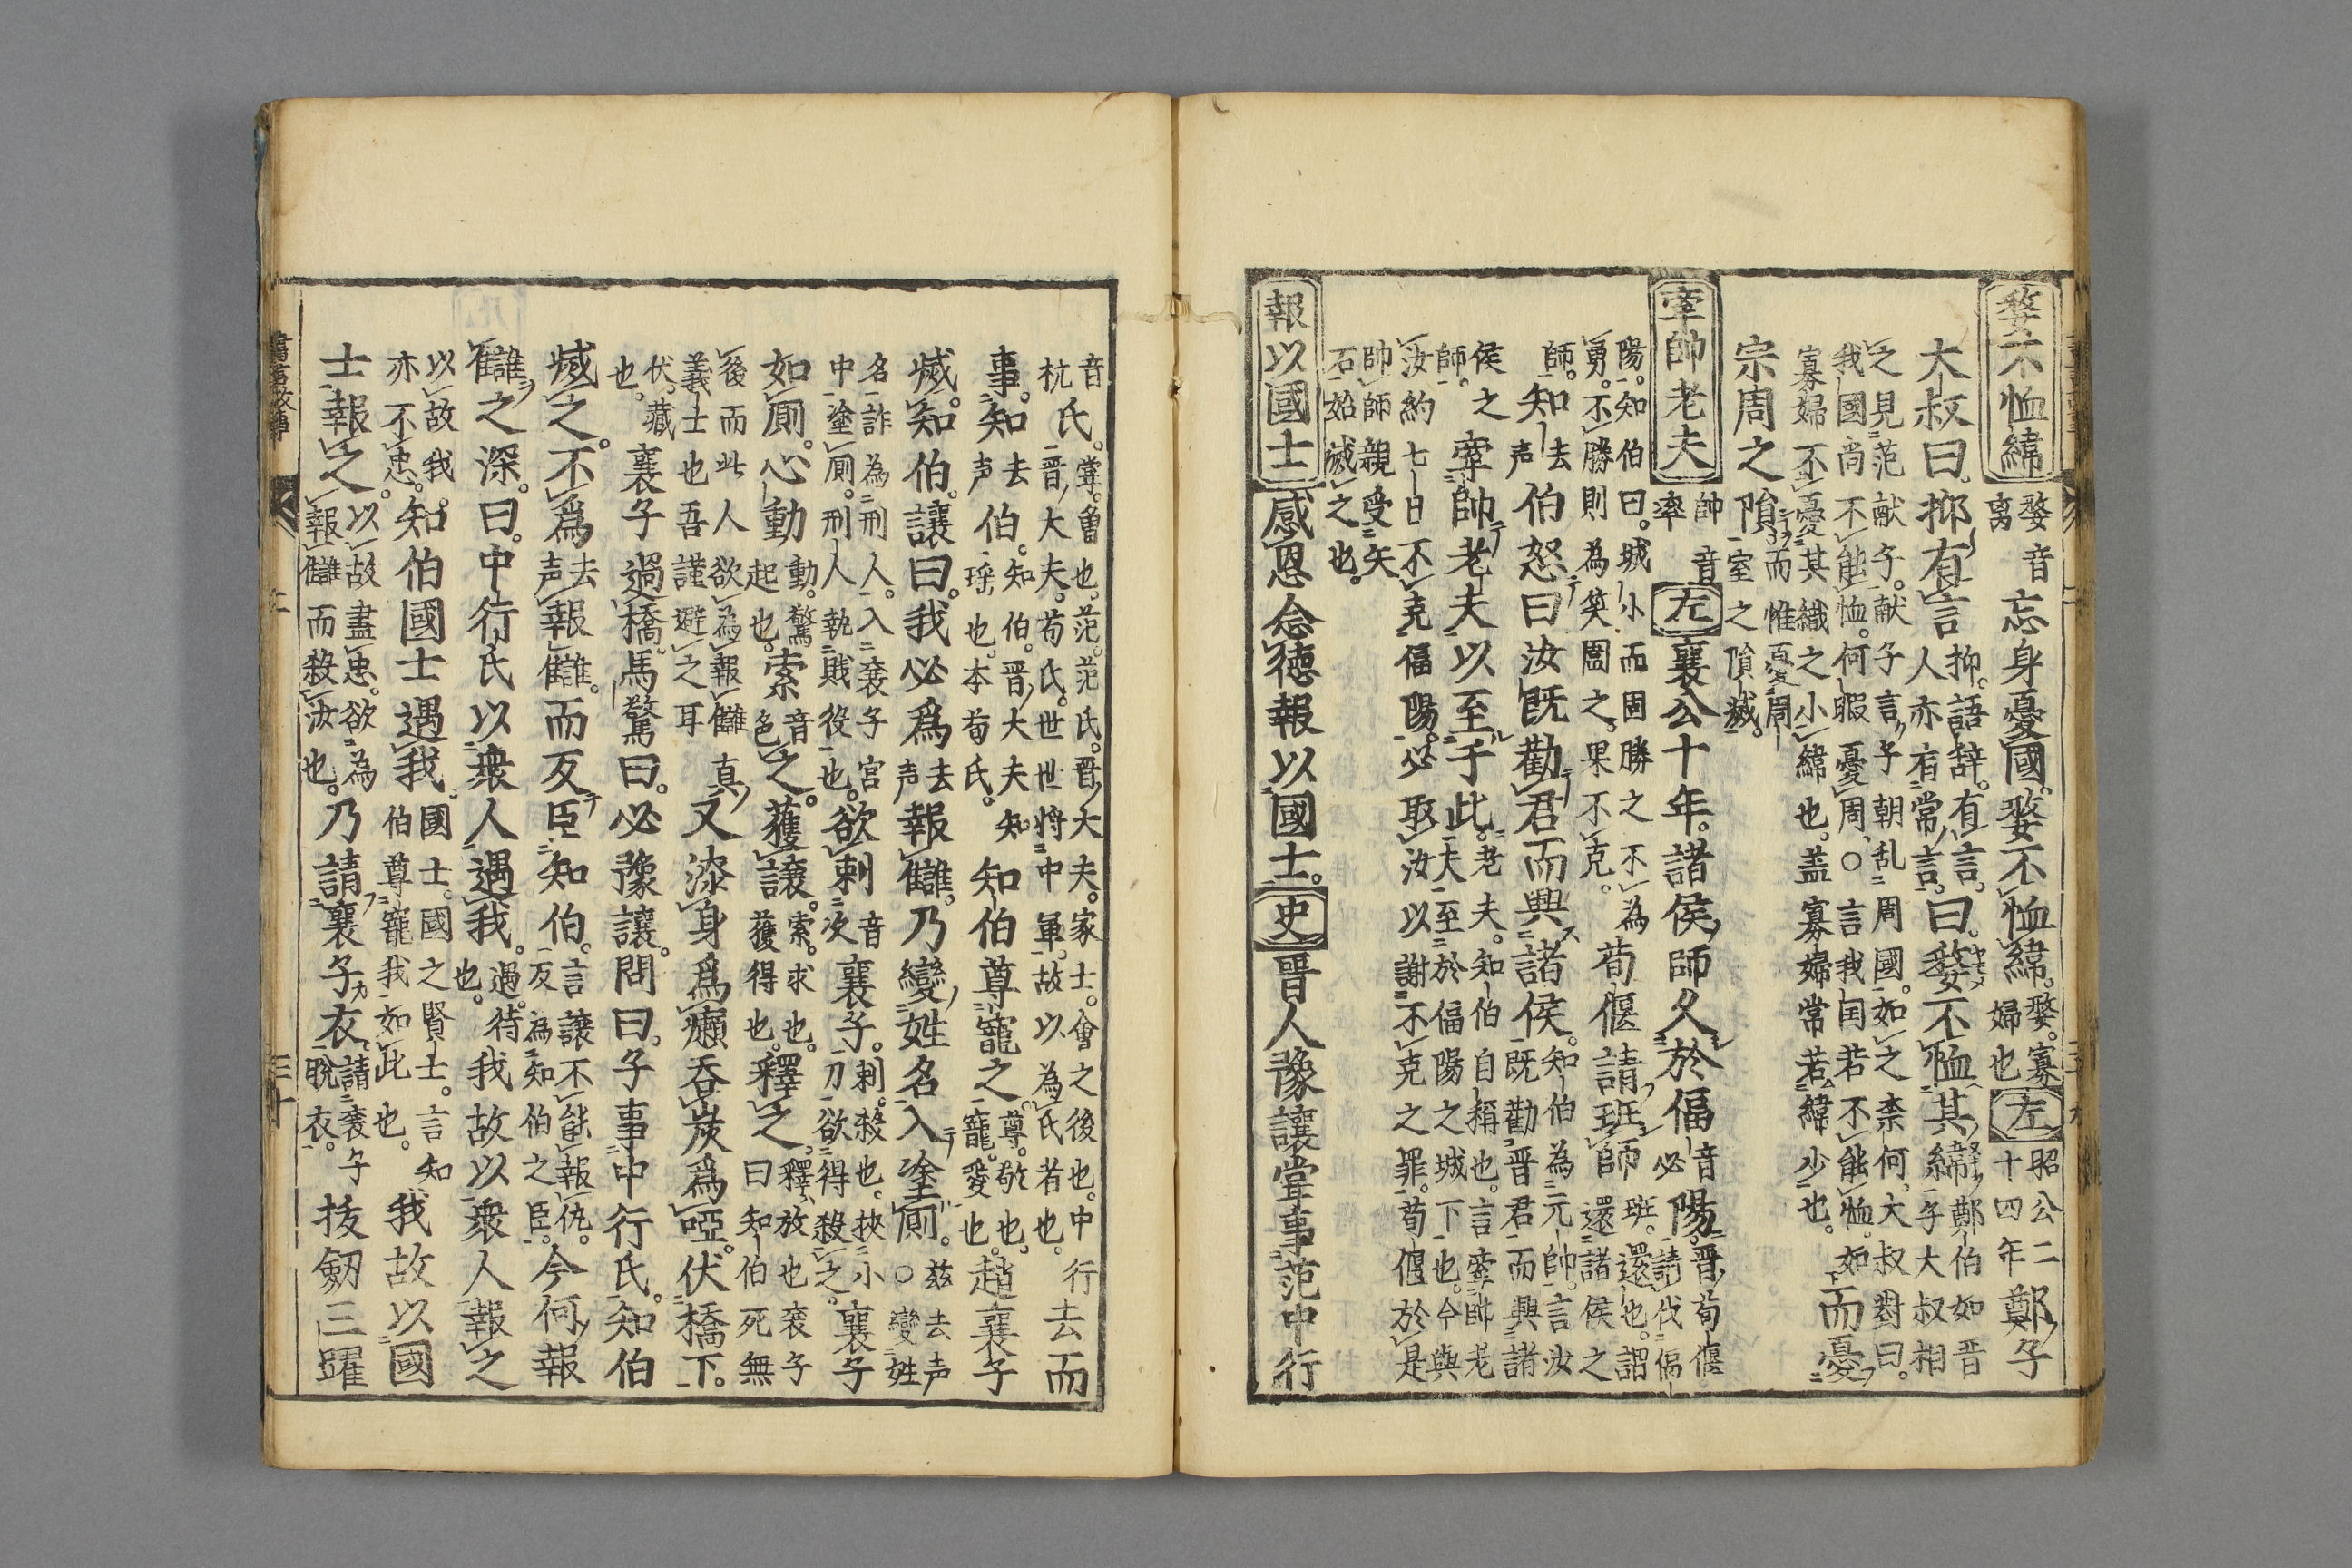 嫠不恤緯 嫠音离 忘身憂國。嫠不恤緯。嫠。寡婦也 左 昭公二十四年 鄭子
大叔曰。抑有言 抑。語辞。有言。人亦有常言。曰。嫠不恤其緯 鄭伯如晋子大叔相
之見范献子。献子言子朝乱周國。如之柰何。大叔對曰。我國尚不能恤。何暇憂周、○言我国若不能恤。如
寡婦不憂其織之小緯也。盖寡婦常若緯少也。 而憂
宗周之隕 而惟憂周室之隕滅。
牽帥老夫 帥音率 左 襄公十年。諸侯師久於偪音必陽。晋荀偃請伐偪
陽。知伯曰。城小而固勝之不為勇。不勝則為笑圍之。果不克。荀偃請班師 班。還也。謂還諸侯之
師。知去声伯怒曰汝既勸君而興諸侯。知伯為元帥。言汝既勸晋君而興諸
侯之師。牽帥老夫以至于此。老夫。知伯自稱也。言牽帥老夫至於偪陽之城下也。今與
汝約七日不克偪陽。必取汝以謝不克之罪。荀偃於是
帥師親受矢石始滅之也。
報以國士 感恩念徳報以國士。史 晋人豫讓甞事范中行
音杭氏。甞。曽也。范。范氏。晋大夫。家士。會之後也。中行晋大夫。荀氏。世世将中軍。故以為氏者也。去而
事。知去声伯。知伯。晋大夫知瑶也。本荀氏。知伯尊寵之 尊。敬也。寵。愛也。趙襄子
滅。知伯。讓曰。我必爲去声報讎。乃變姓名入塗厠。玆去声○變姓
名詐為刑人。入襄子宮中塗厠。刑人執賎役也。欲刺音次襄子。刺。殺也。挾小刀欲得殺之。襄子
如厠。心動 動。驚起也。索音色之。獲讓。索。求也。獲得也。釋之。釋放也襄子曰知伯死無
後而此人欲為報讎真義士也吾謹避之耳 又漆身爲癩吞炭爲啞。伏橋下。
伏。藏也。襄子過橋。馬驚曰。必豫讓。問曰。子事中行氏。知伯
滅之。不爲去声報讎。而反臣知伯。言讓不能報仇。反為知伯之臣。今何報
讎之深。曰。中行氏以衆人遇我。遇。待也。我故以衆人報之
以故我亦不忠。知伯國士遇我。國士。國之賢士。言知伯尊寵我如此也。我故以國
士報之。以故盡忠。欲為報讎而殺汝也。乃請襄子衣 請襄子脱衣。抜劔三躍